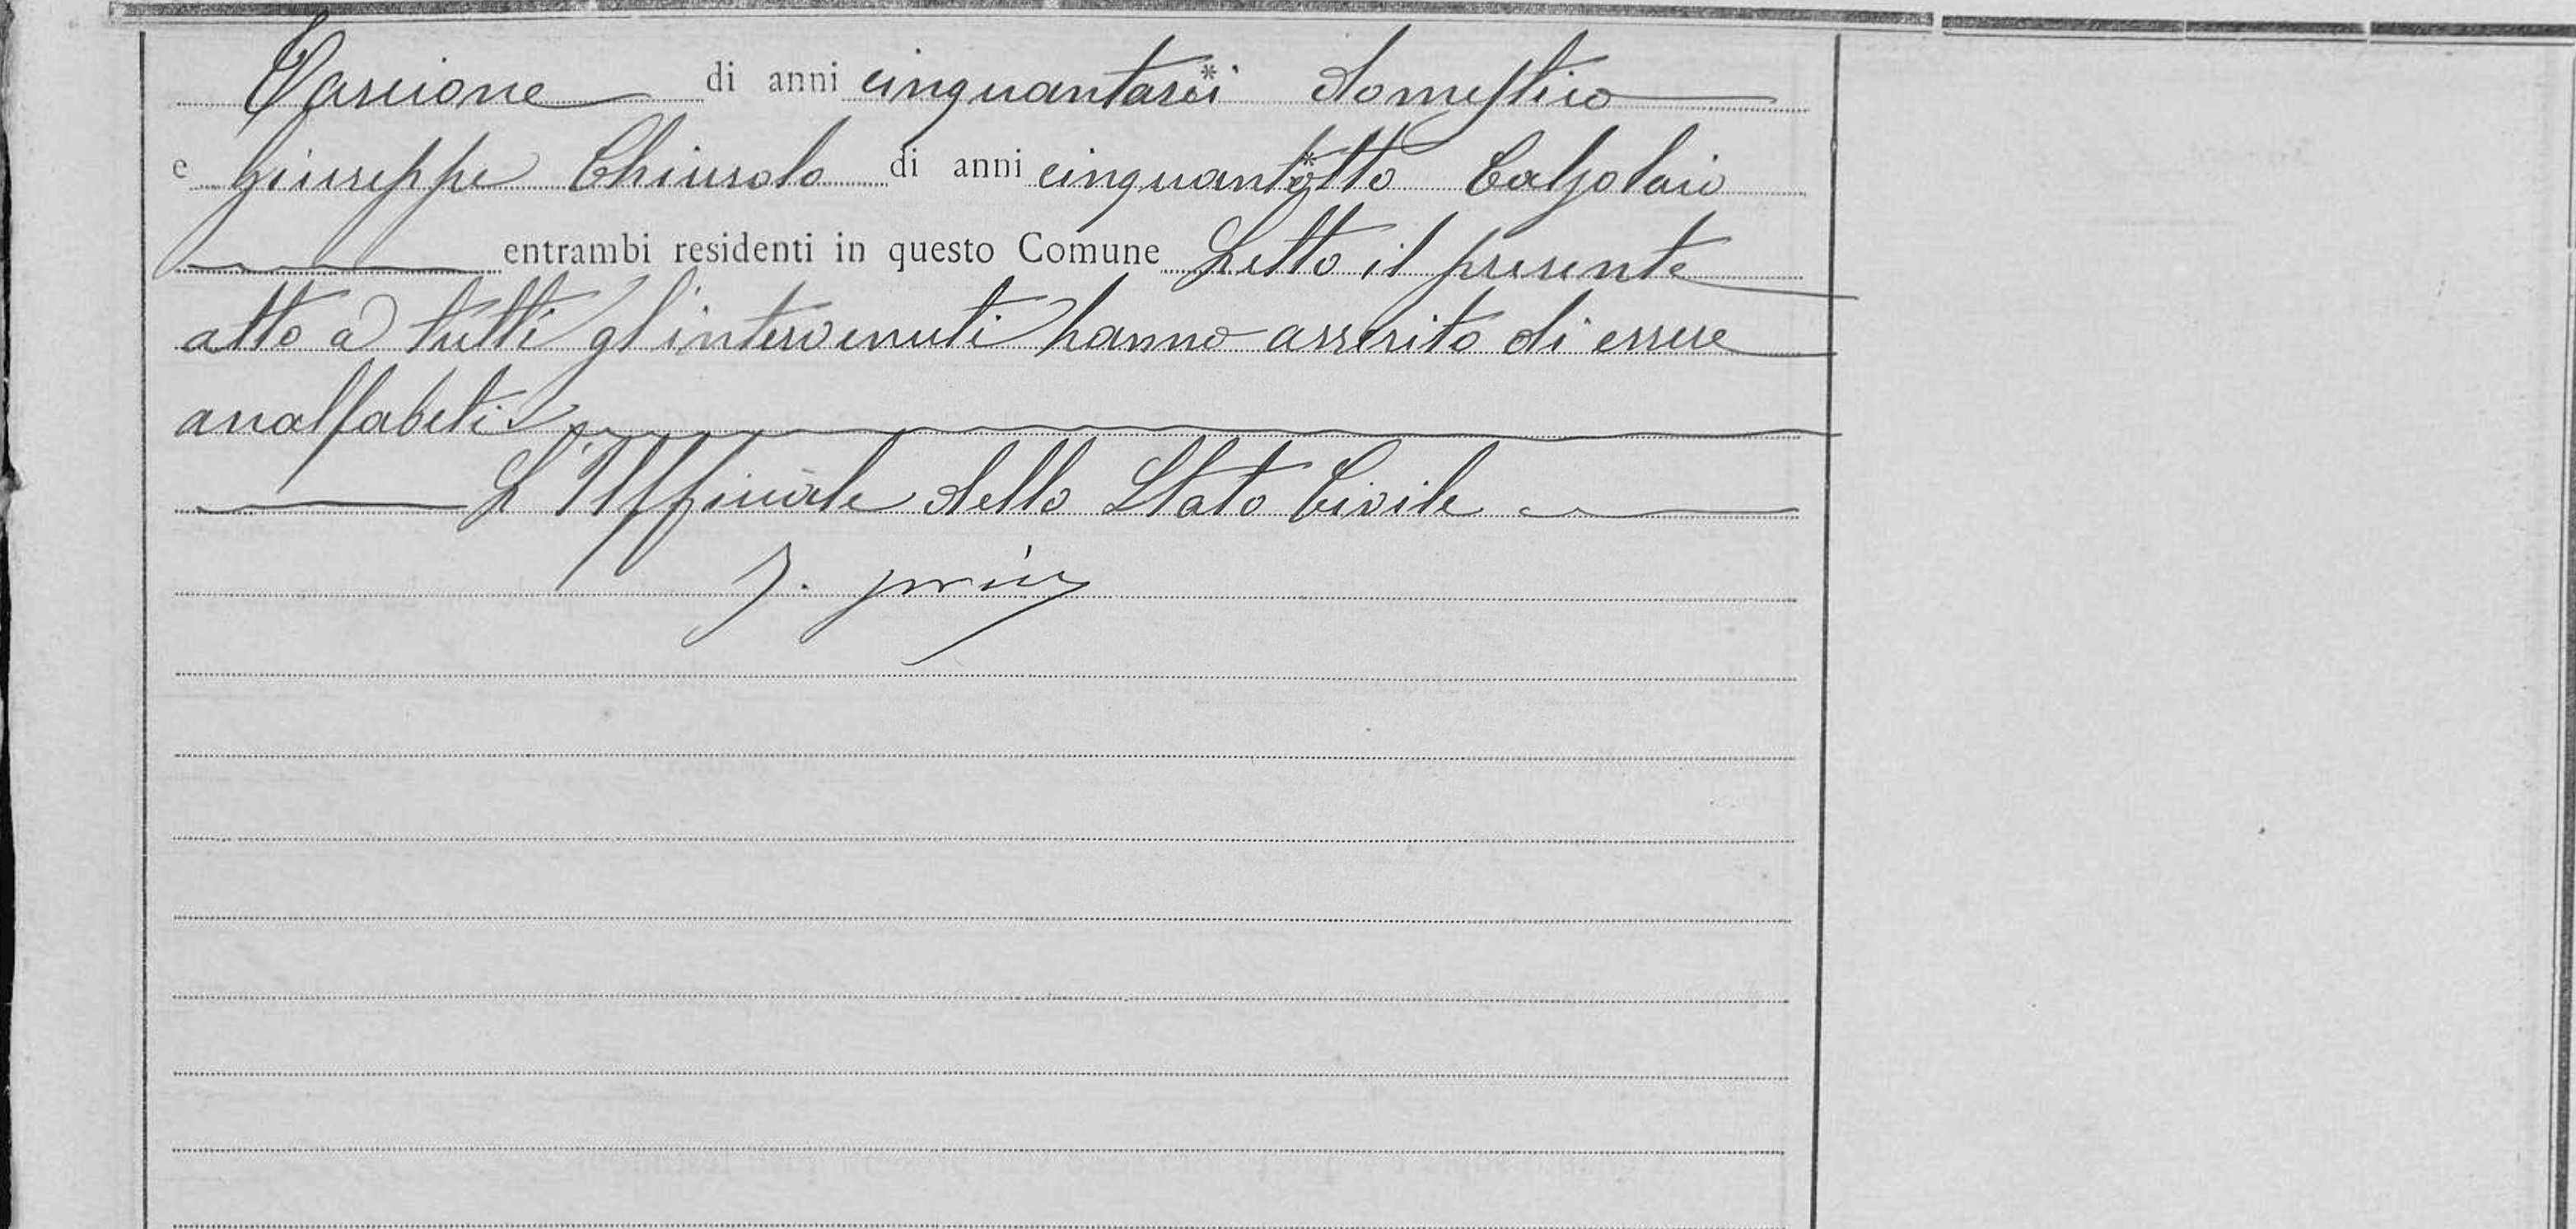 di anni cinquantasei domestico
e Giuseppe Chiusolo di anni cinquantotto Calzolaio
entrambi residenti in questo Comune Letto il presente
atto a tutti gl'intervenuti hanno asserito di essere
analfabeti.
L'Ufficiale dello Stato Civile